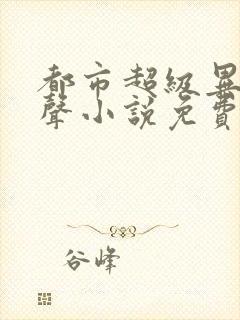 都市超級異
聲小說免費
谷峰